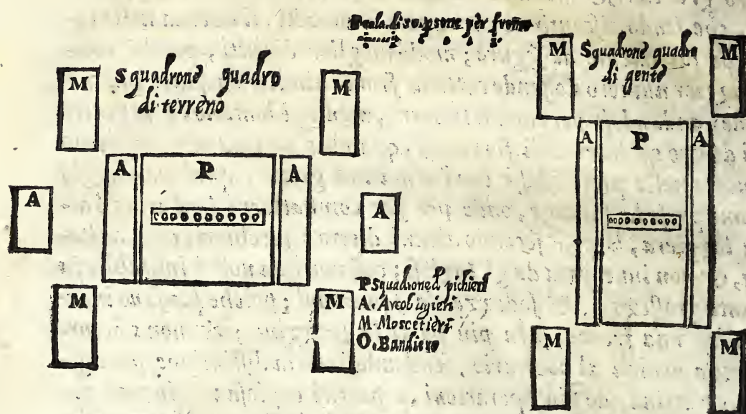 Scala di 50 persone per fronte
Squadrone quadro
di terreno
M
M
A
P
A
A
A
M
M
P Squadrone d pichieri
A. Arcobugieri
M. Moscetieri
O. Bandiere
Squadrone quadro
di gente
M
M
A
P
A
M
M